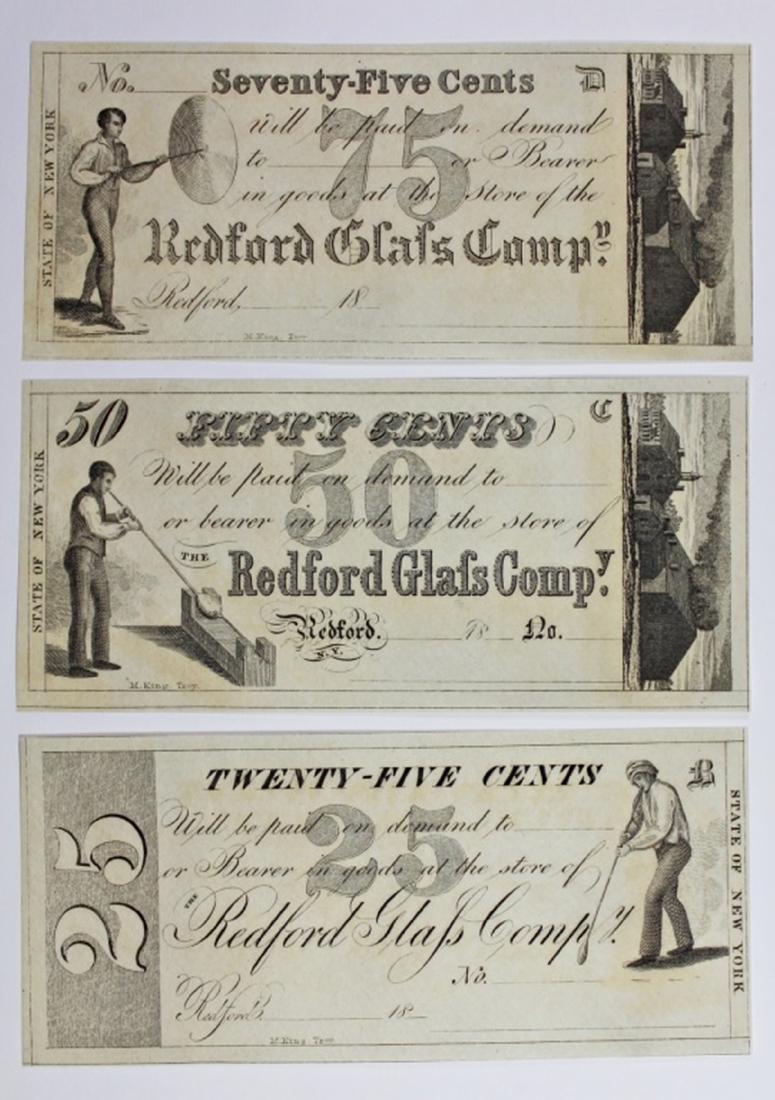 No. Seventy-Five Cents D
STATE OF NEW YORK
75
Will be paid on demand
to or Bearer
in goods at the Store of the
Redford Glaſs Compy.
Redford, 18
M. King Troy
50 FIFTY CENTS C
STATE OF NEW YORK
50
Will be paid on demand to
or bearer in goods at the store of
THE
Redford Glaſs Compy.
Redford. 18 No.
N.Y.
M. King. Troy.
25
TWENTY-FIVE CENTS B
STATE OF NEW YORK
25
Will be paid on demand to
or Bearer in goods at the store of
THE
Redford Glaſs Compy.
No.
Redford 18
M. King Troy